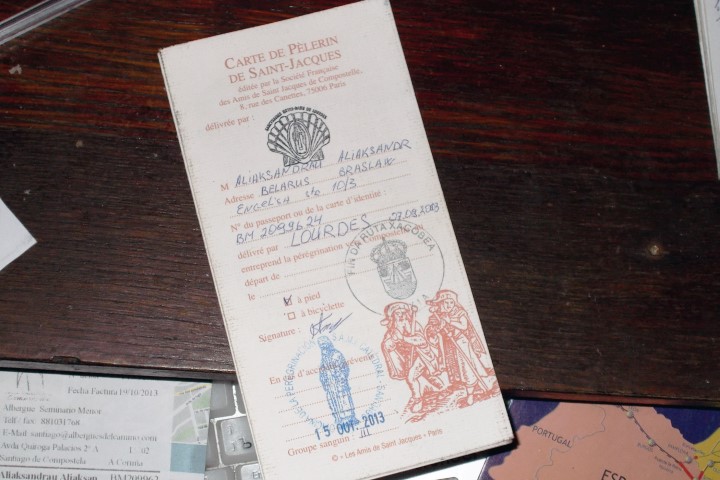 CARTE DE PÈLERIN
DE SAINT-JACQUES
éditée par la Société Française
des Amis de Saint Jacques de Compostelle,
8, rue des Canettes, 75006 Paris
délivrée par :
M ALIAKSANDRAU ALIAKSANDR
Adresse BELARUS BRASLAW
ENGELSA 10/3
N° du passeport ou de la carte d'identité :
BM 2099624
délivré par : LOURDES 27.08.2013
entreprend la pérégrination vers Compostelle
FIN DA RUTA XACOBEA
départ de
le
à pied
à bicyclette
Signature :
En cas d'accident prévenir
15 OUT 2013
Groupe sanguin : III
© « Les Amis de Saint Jacques » Paris
Fecha Factura 19/10/2013
Albergue Seminario Menor
Telf / fax: 881031768
E-Mail santiago@alberguesdelcamino.com
Avda Quiroga Palacios 2º A
Santiago de Compostela A Coruña
Aliaksandrau Aliaksan BM209962
PORTUGAL
ESP